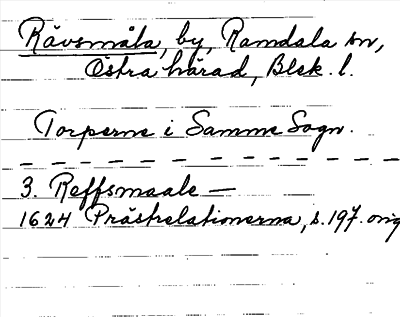 Rävsmåla, by, Ramdala sn,
Östra härad, Blek. l.
Torperne i Samme Sogn.
3. Reffsmaale —
1624 Prästrelationerna, s. 197. orig